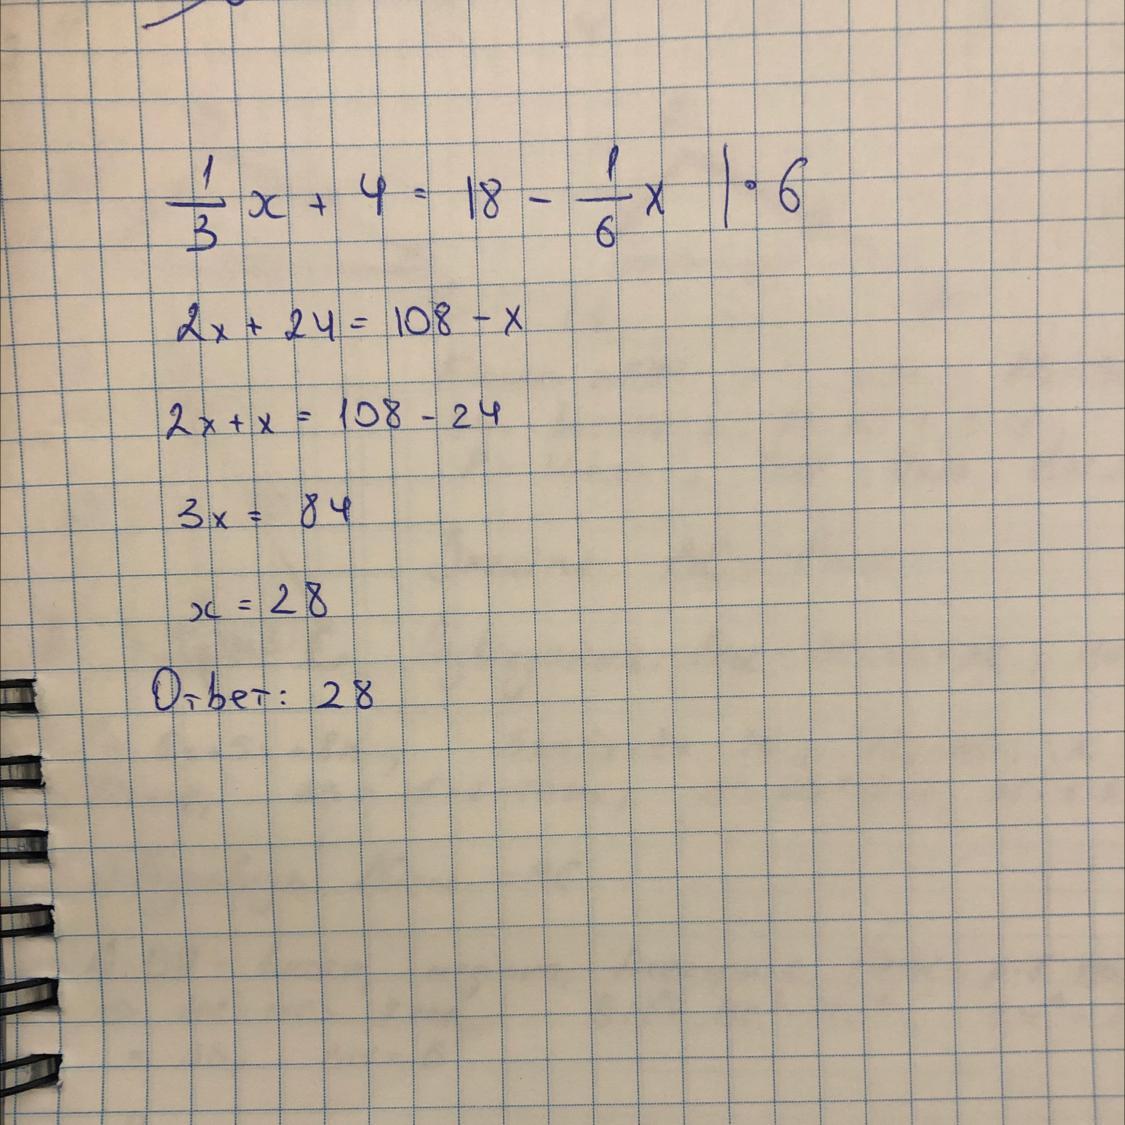 1/3 x + 4 = 18 - 1/6 x | · 6
2x + 24 = 108 - x
2x + x = 108 - 24
3x = 84
x = 28
Ответ: 28